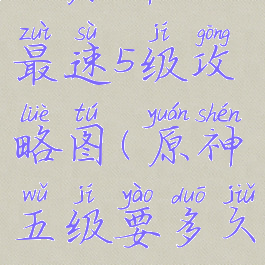 zuì sù jí gōng
最速5级攻
lüè tú yuán shén
略图(原神
wǔ jí yào duō jiǔ
五级要多久